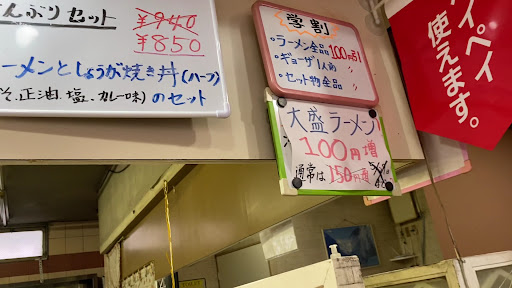 んぶりセット
¥940
¥850
ラーメンとしょうが焼き丼(ハーフ)
そ.正油.塩.カレー味)のセット
学割
・ラーメン全品100円引
・ギョーザ1人前 〃
・セット物全品 〃
大盛ラーメン
100円増
通常は150円増
イペイ
使えます。